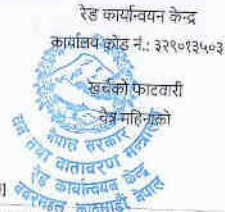 रेड कार्यान्वयन केन्द्र
कार्यालय कोड नं.: ३२९०१३५०३
खर्चको फाटवारी
चैत्र महिनाको
नेपाल सरकार
वन तथा वातावरण मन्त्रालय
रेड कार्यान्वयन केन्द्र
बबरमहल काठमाडौं नेपाल